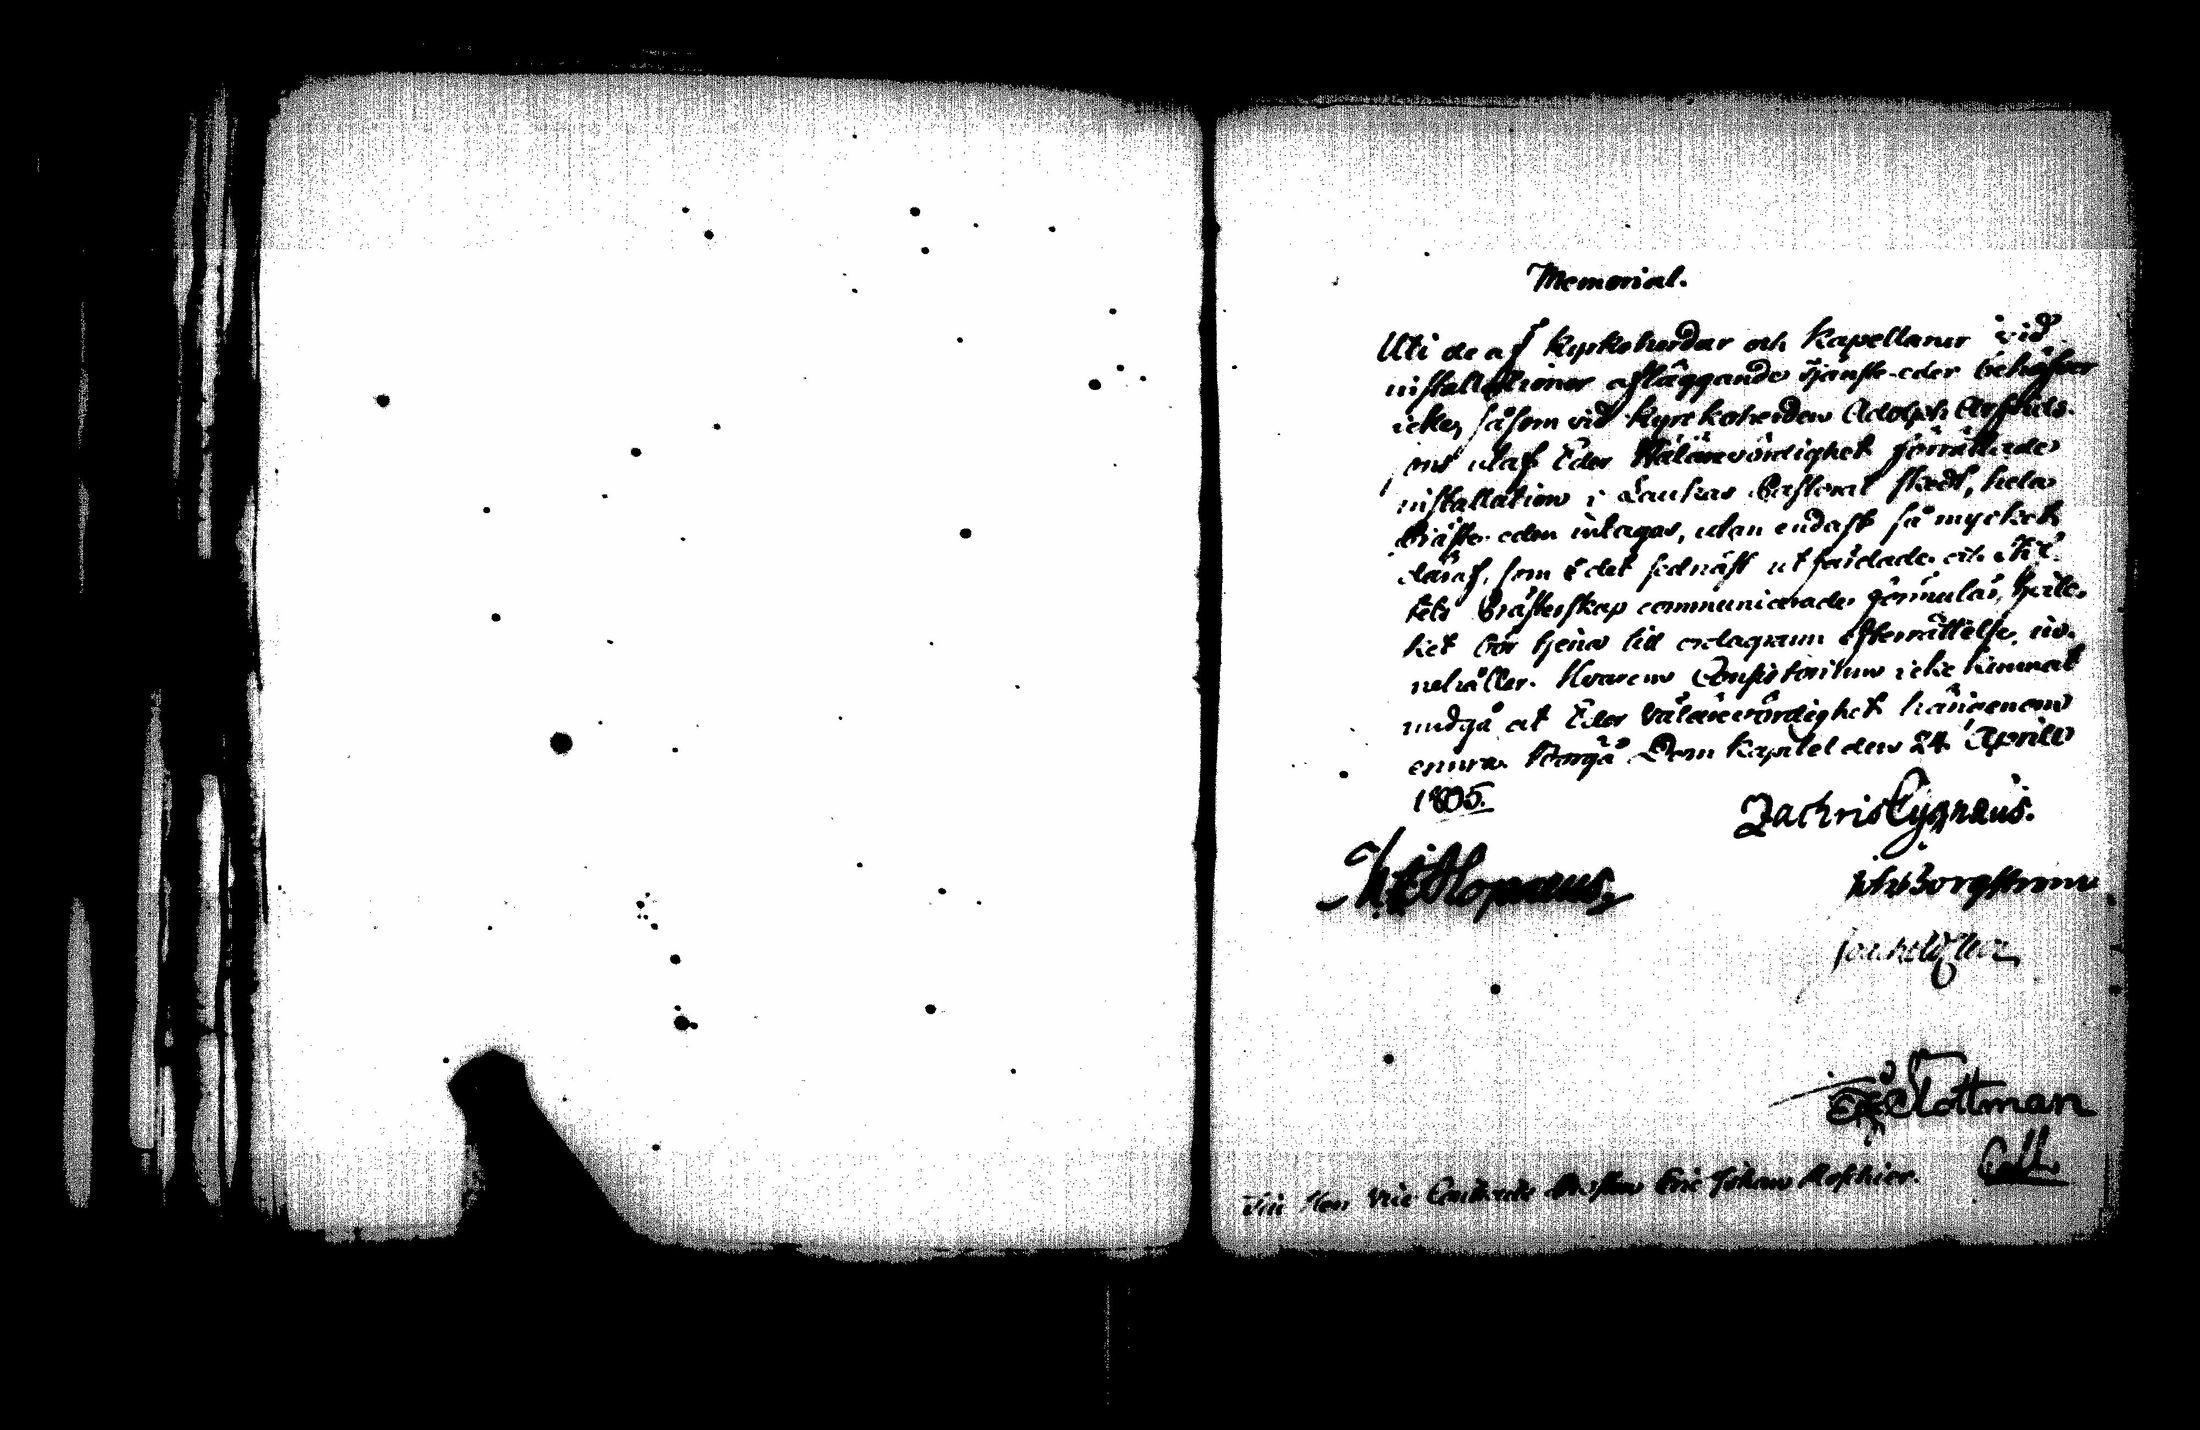 Memorial.
Uti de af Kyrkoherdar och Kapellaner vid
installationer afläggande tjenste-eder behöfver
icke, såsom vid Kyrkoherden Adolph Arfvids-
ons utaf Eder Välärevördighet förrättade
installation i Laukas Pastorat skedt, hela
Präste-eden intagas, utan endast så mycket
däraf, som det sednast utfärdade och Stif-
tets Prästerskap communicerade formulär, hvil-
ket bör tjena till ordagrann efterrättelse, in-
nehåller. Hvarom Consistorium icke kunnat
undgå at Eder Välärevördighet härigenom
errinra. Borgå Dom Kapitel den 24 Aprill
1805.
Zachris Cygnæus.
Alopæus.
Borgström
Slottman
Vice Contracts Prosten Eric Johan